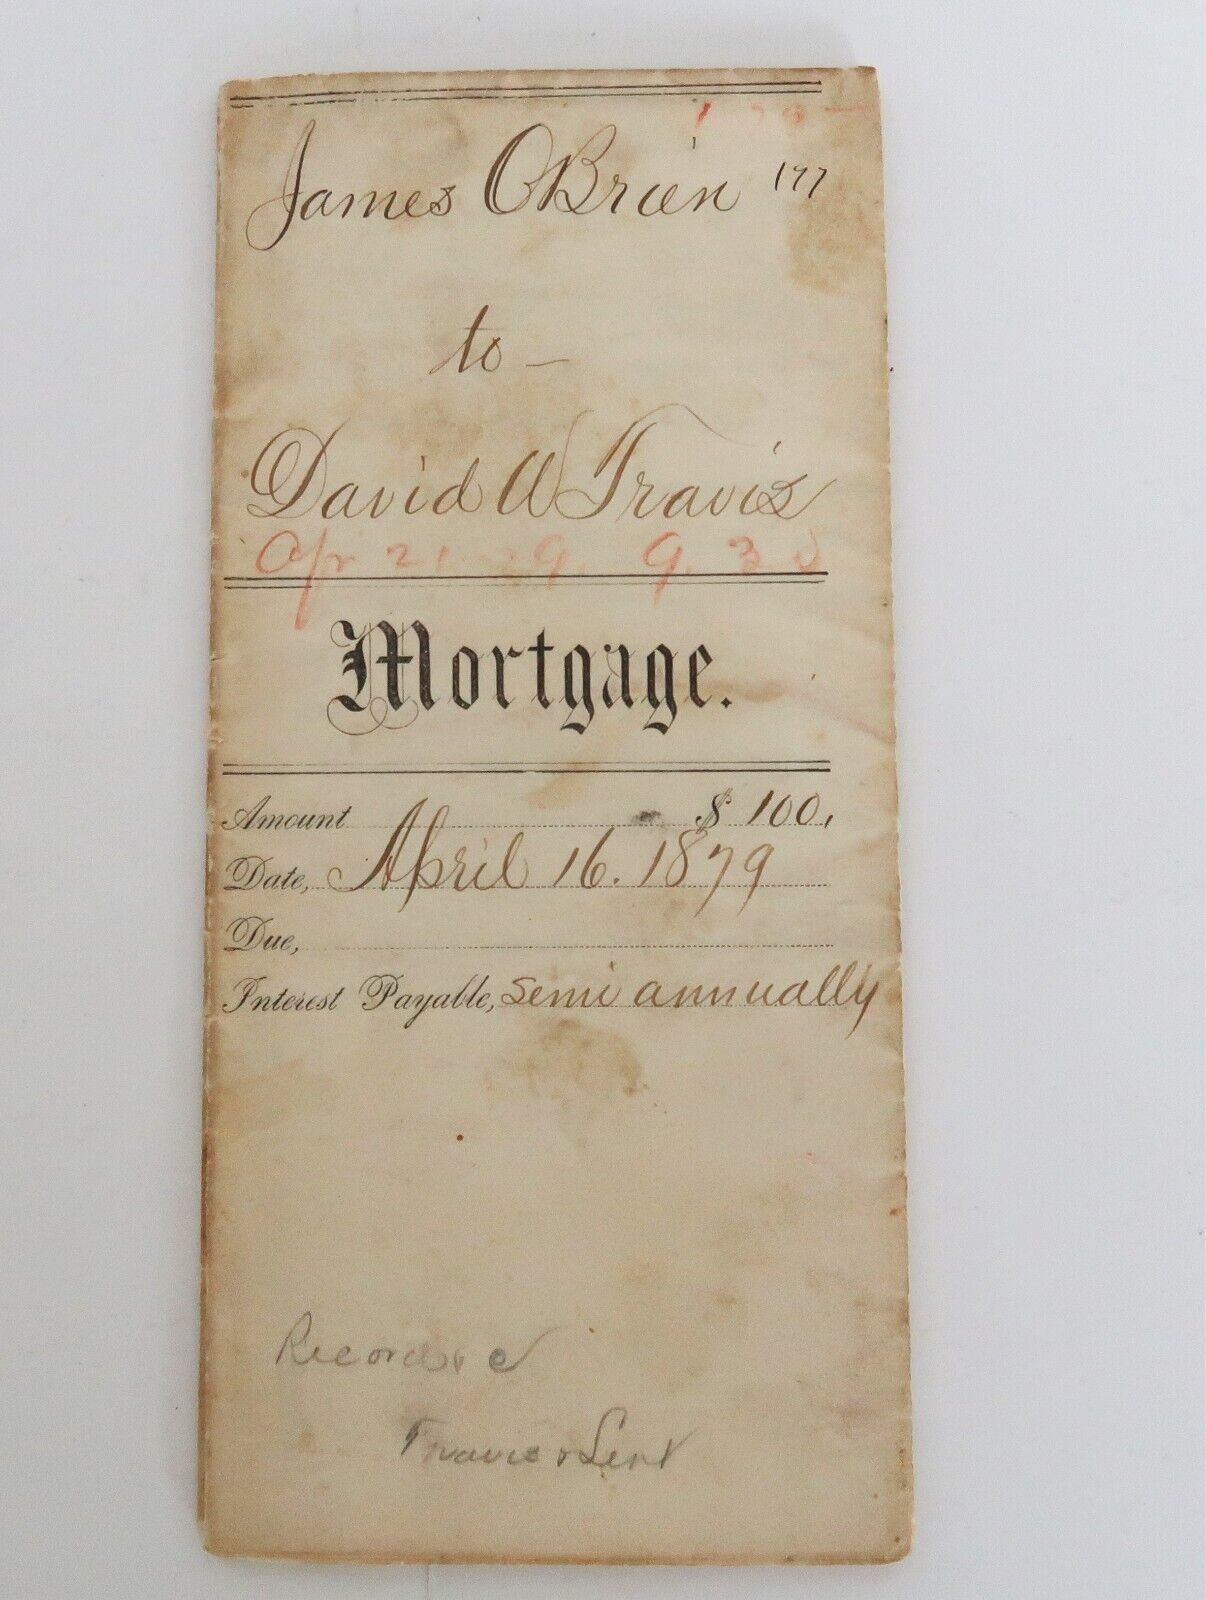 James OBrien 177
to –
David W Travis
Apr 21 9.30
Mortgage.
Amount $ 100,
Date, April 16. 1879
Due,
Interest Payable, semi annually
Record &c
Travis & Sent